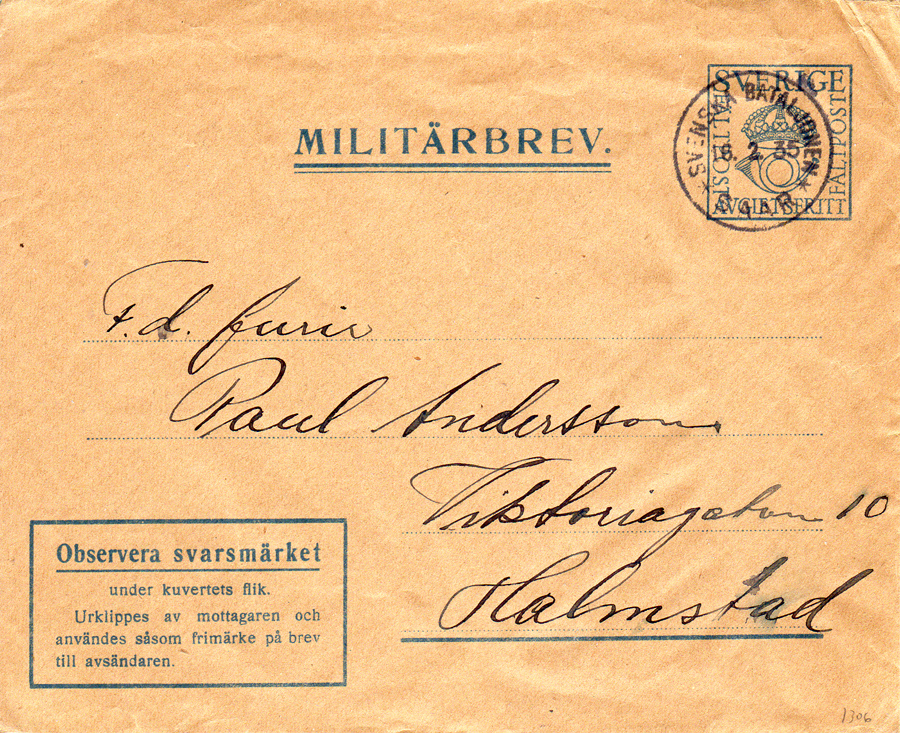 MILITÄRBREV.
SVERIGE
FÄLTPOST
FÄLTPOST
AVGIFTSFRITT
SVENSKA BATALJONEN
16. 2. 35
* SAAR *
F. d. furir
Paul Andersson
Viktoriagatan 10
Halmstad
Observera svarsmärket
under kuvertets flik.
Urklippes av mottagaren och
användes såsom frimärke på brev
till avsändaren.
1306